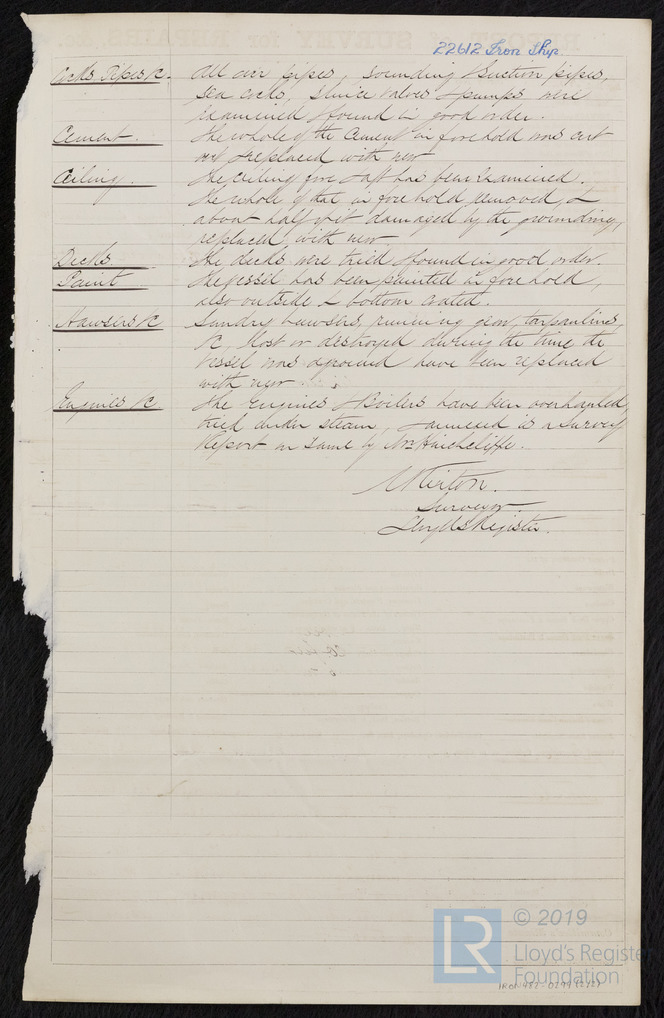 22612 Iron Ship.
Cocks Pipes &c. All air pipes, sounding & suction pipes,
sea cocks, sluice valves & pumps were
examined & found in good order.
Cement. The whole of the cement in fore hold was cut
out & replaced with new
Ceiling. The ceiling fore & aft has been examined.
The whole of that in fore hold removed, &
about half of it damaged by the grounding,
replaced with new.
Decks The decks were tried & found in good order.
Paint The vessel has been painted in fore hold,
also outside & bottom coated.
Hawsers &c Sundry hawsers, running gear, tarpaulines,
&c, lost or destroyed during the time the
vessel was aground have been replaced
with new.
Engines &c The Engines & Boilers have been overhauled,
tried under steam, & annexed is a Survey
Report on same by Mr Hinchcliffe.
Surveyor
Lloyds Register.
© 2019
LR Lloyd's Register
Foundation